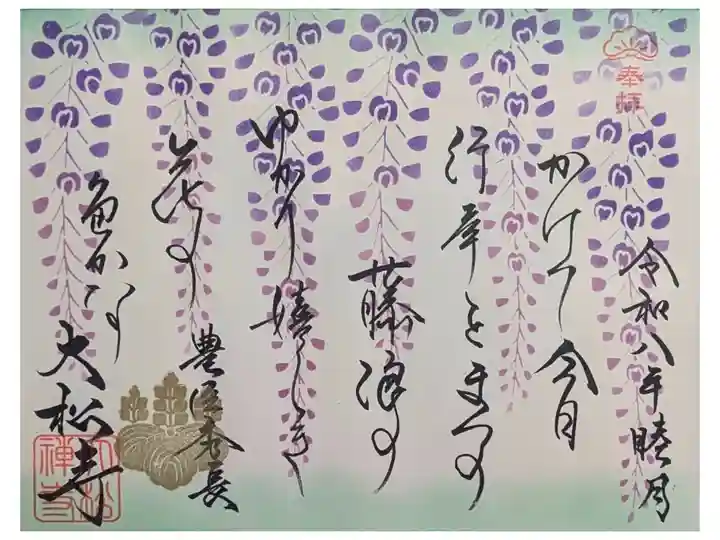 奉拝
令和八年睦月
かけて今日
行幸をまつの
藤浪の
ゆかり嬉しき
花の
豊臣秀長
色かな
大松寺